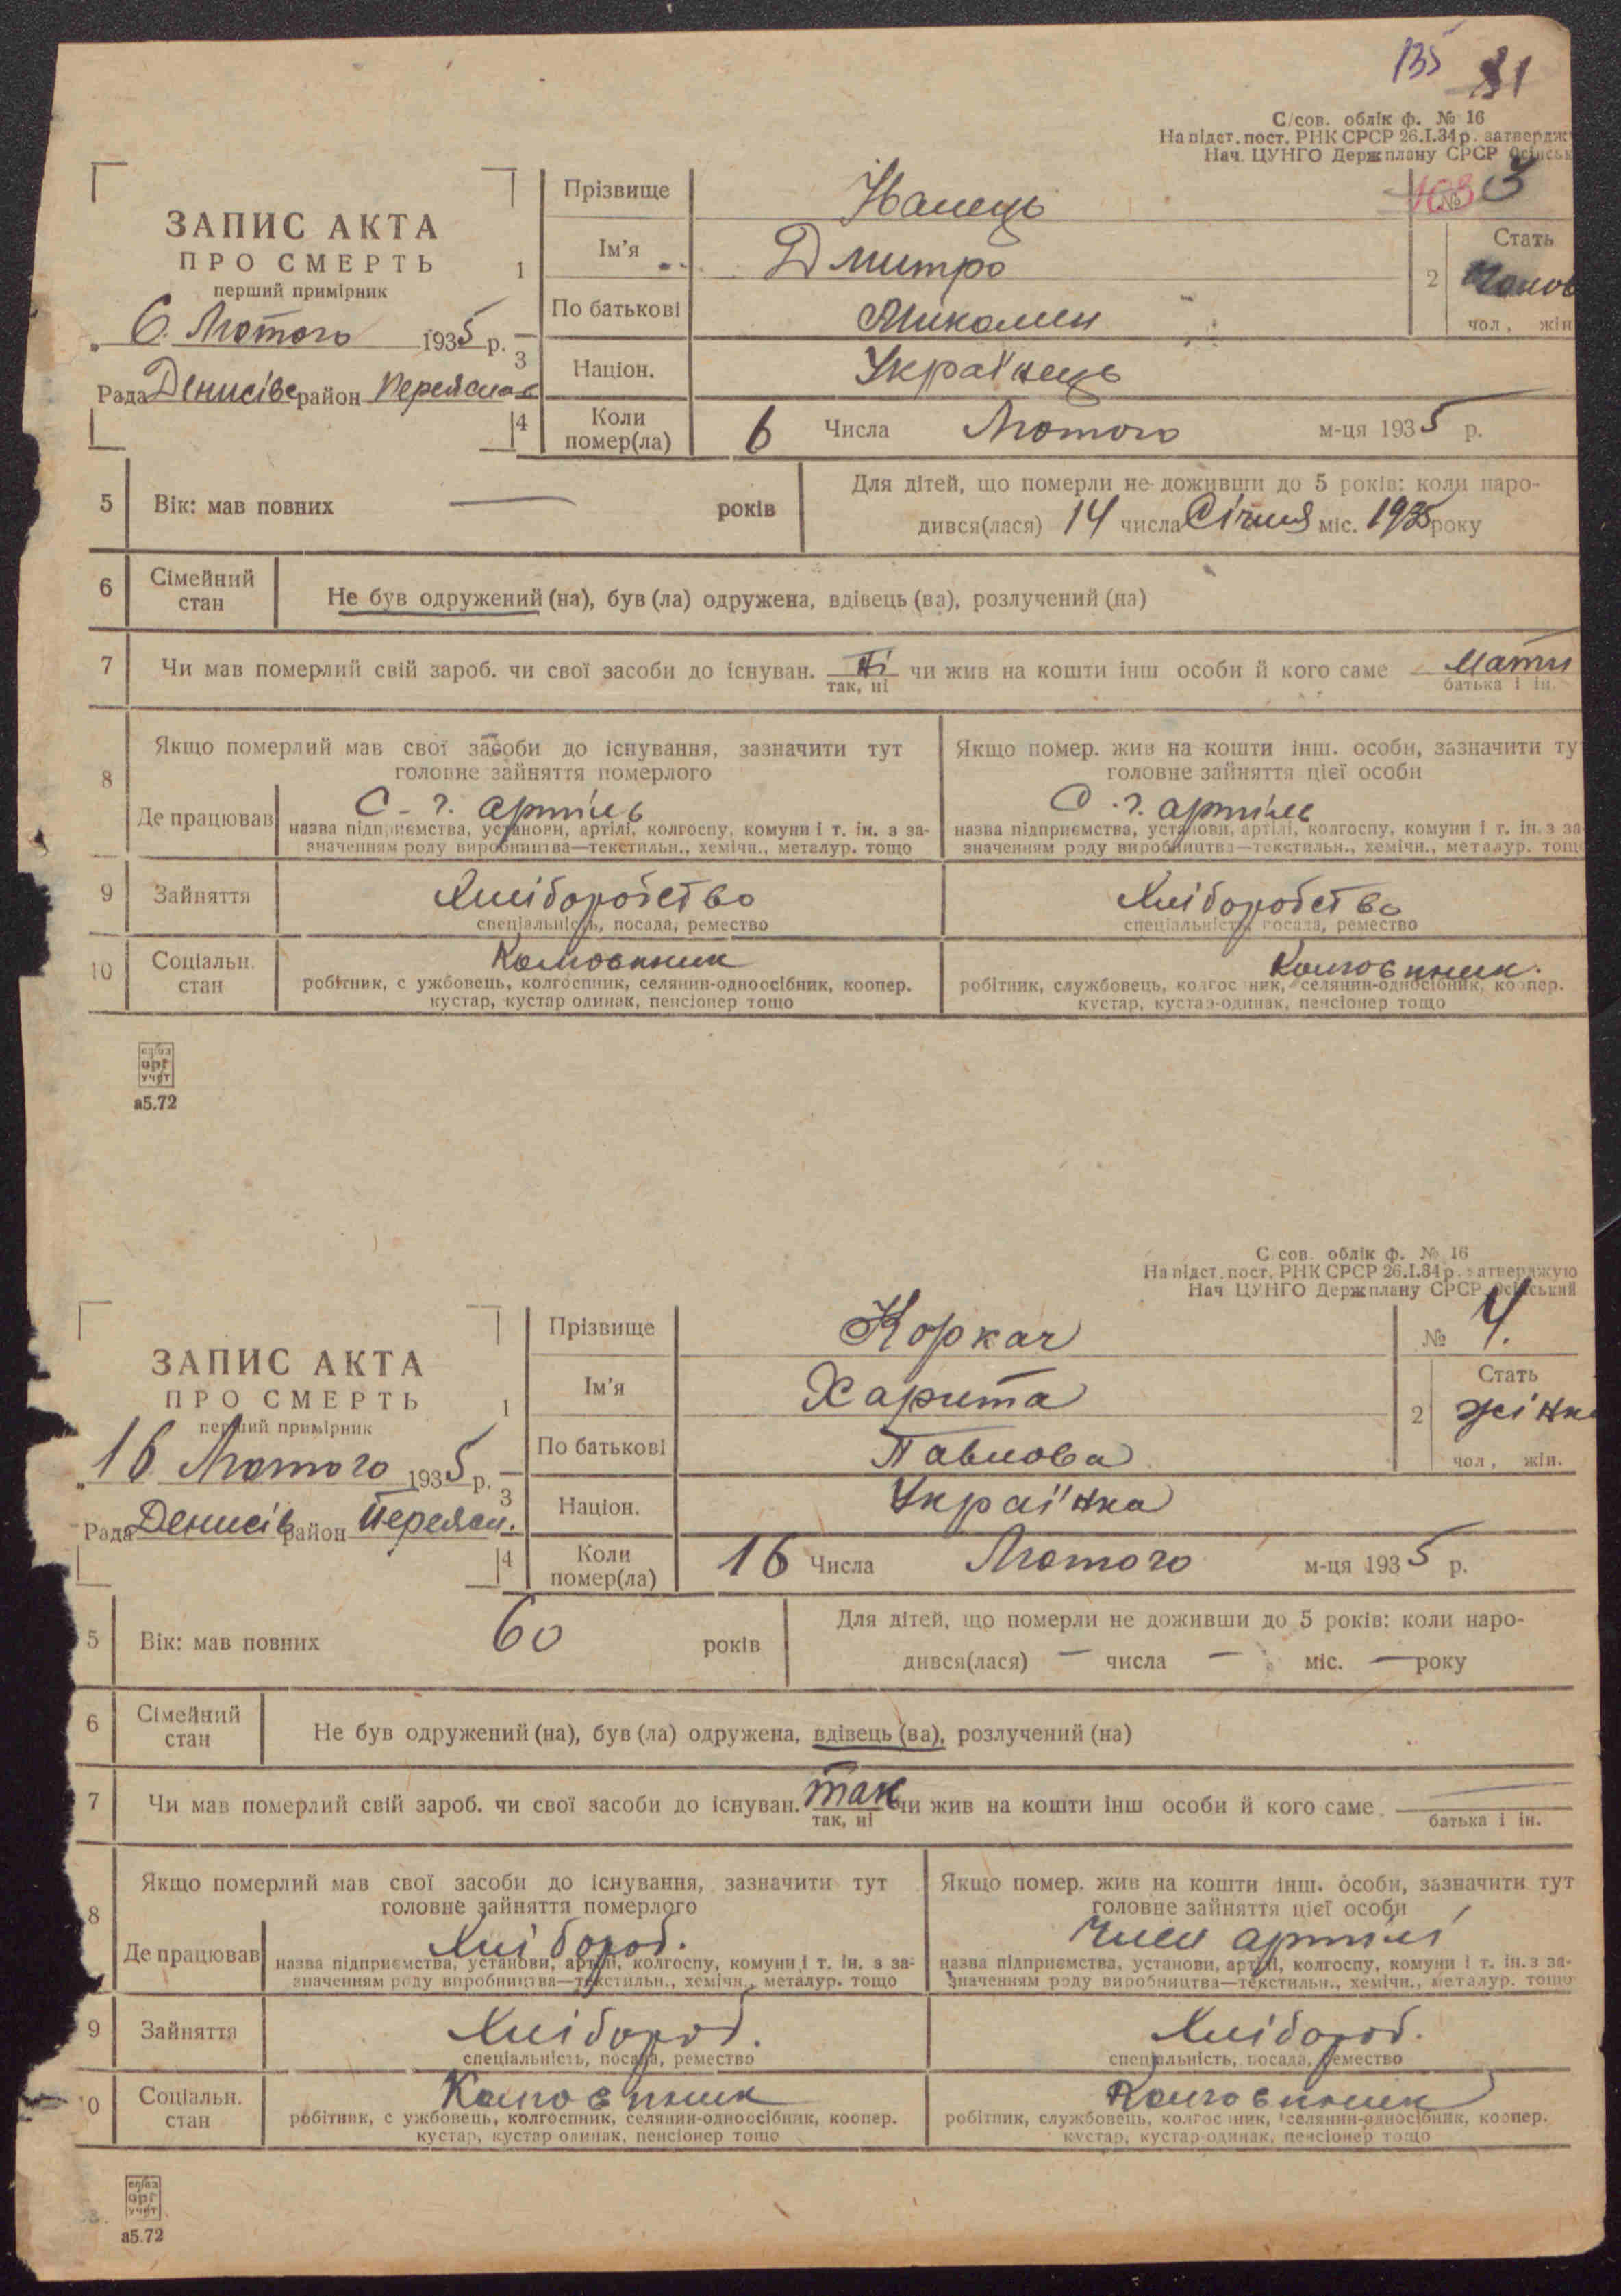 135 81
С/сов. облік ф. № 16
На підст. пост. РНК СРСР 26.І.34 р. затверджу
Нач. ЦУНГО Держплану СРСР Осінськ
ЗАПИС АКТА
ПРО СМЕРТЬ
перший примірник
6 Лютого 1935 р.
Рада Денисівс район Переяслав
1 Прізвище
№ 3
Ім'я Дмитро
По батькові Миколич
2 Стать Чолов
чол, жін
3 Націон. Українець
4 Коли помер(ла) 6 Числа Лютого м-ця 1935 р.
5 Вік: мав повних — років
Для дітей, що померли не доживши до 5 років: коли наро-
дився(лася) 14 числа Січня міс. 1935 року
6 Сімейний стан Не був одружений (на), був (ла) одружена, вдівець (ва), розлучений (на)
7 Чи мав померлий свій зароб. чи свої засоби до існуван. Ні чи жив на кошти інш особи й кого саме Мати
так, ні батька і ін.
8 Якщо померлий мав свої засоби до існування, зазначити тут
головне зайняття померлого
Якщо помер. жив на кошти інш. особи, зазначити ту
головне зайняття цієї особи
Де працював С-г. артіль С.г. артіль
назва підприємства, установи, артілі, колгоспу, комуни і т. ін. з за-
значенням роду виробництва—текстильн., хемічн., металур. тощо
назва підприємства, установи, артілі, колгоспу, комуни і т. ін. з за
значенням роду виробництва—текстильн., хемічн., металур. тощо
9 Зайняття Хліборобство Хліборобство
спеціальність, посада, ремество спеціальність, посада, ремество
10 Соціальн. стан Колгоспник Колгоспник.
робітник, с ужбовець, колгоспник, селянин-одноосібник, коопер.
кустар, кустар одинак, пенсіонер тощо
робітник, службовець, колгос ник, селянин-односібник, коопер.
кустар, кустар-одинак, пенсіонер тощо
орг
учёт
а5.72
С сов. облік ф. № 16
На підст. пост. РНК СРСР 26.І.34 р. затверджую
Нач ЦУНГО Держплану СРСР Осінський
ЗАПИС АКТА
ПРО СМЕРТЬ
перший примірник
16 Лютого 1935 р.
Рада Денисів район Переясл.
1 Прізвище Коркач
№ 4.
Ім'я Харита
По батькові Павлова
2 Стать жінк
чол, жін.
3 Націон. Українка
4 Коли помер(ла) 16 Числа Лютого м-ця 1935 р.
5 Вік: мав повних 60 років
Для дітей, що померли не доживши до 5 років: коли наро-
дився(лася) — числа — міс. — року
6 Сімейний стан Не був одружений (на), був (ла) одружена, вдівець (ва), розлучений (на)
7 Чи мав померлий свій зароб. чи свої засоби до існуван. так чи жив на кошти інш особи й кого саме —
так, ні батька і ін.
8 Якщо померлий мав свої засоби до існування, зазначити тут
головне зайняття померлого
Якщо помер. жив на кошти інш. особи, зазначити тут
головне зайняття цієї особи
Де працював Хлібороб. Член артілі
назва підприємства, установи, артілі, колгоспу, комуни і т. ін. з за-
значенням роду виробництва—текстильн., хемічн., металур. тощо
назва підприємства, установи, артілі, колгоспу, комуни і т. ін. з за-
значенням роду виробництва—текстильн., хемічн., металур. тощо
9 Зайняття Хлібороб. Хлібороб.
спеціальність, посада, ремество спеціальність, посада, ремество
0 Соціальн. стан Колгоспник Колгоспник
робітник, с ужбовець, колгоспник, селянин-одноосібник, коопер.
кустар, кустар одинак, пенсіонер тощо
робітник, службовець, колгос ник, селянин-односібник, коопер.
кустар, кустар-одинак, пенсіонер тощо
орг
учёт
а5.72